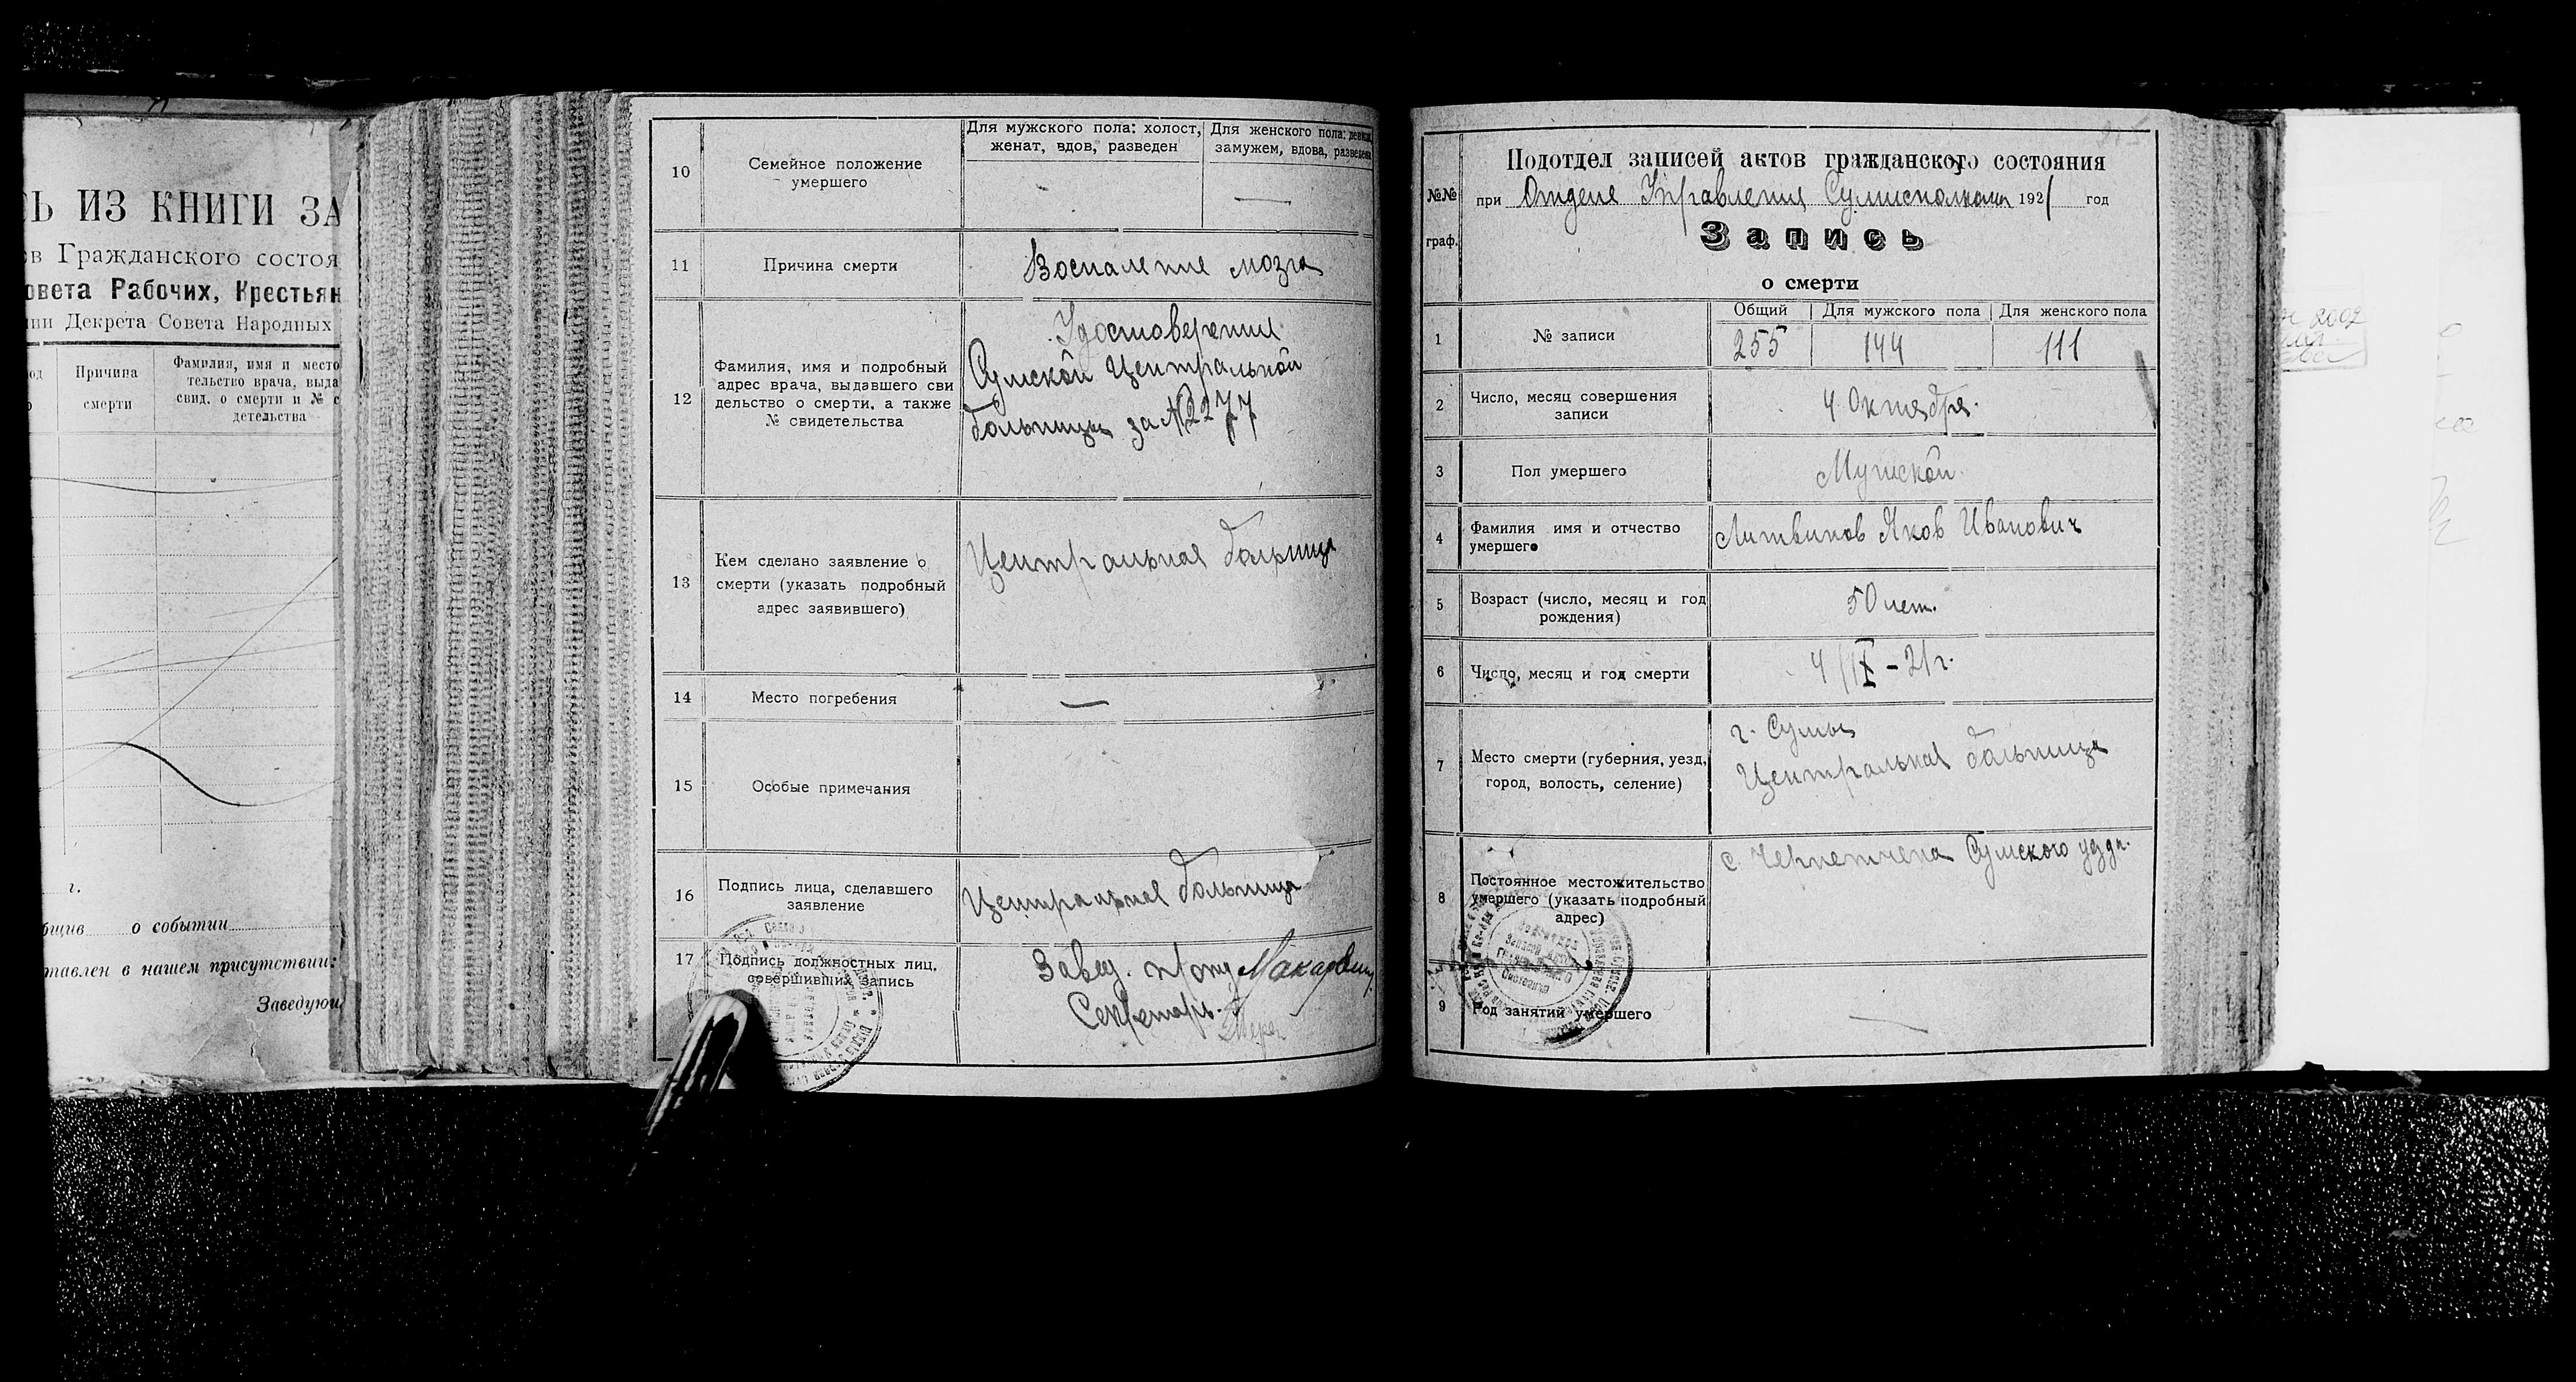 Ь ИЗ КНИГИ ЗА
ов Гражданского состоя
овета Рабочих, Крестьян
нии Декрета Совета Народных
Причина
смерти
Фамилия, имя и место
тельство врача, выда
свид. о смерти и № с
детельства
г.
бщив о событии
тавлен в нашем присутствии:
Заведующ
10
Семейное положение
умершего
Для мужского пола: холост,
женат, вдов, разведен
Для женского пола: девица,
замужем, вдова, разведена
—
11
Причина смерти
Воспаление мозга
12
Фамилия, имя и подробный
адрес врача, выдавшего сви
дельство о смерти, а также
№ свидетельства
Удостоверения
Сумской Центральной
больницы за №2277
13
Кем сделано заявление о
смерти (указать подробный
адрес заявившего)
Центральная больница
14
Место погребения
—
15
Особые примечания
16
Подпись лица, сделавшего
заявление
Центральная больница
17
Подпись должностных лиц,
совершивших запись
Завед. п/отд Макаров
Секретарь
№№
граф.
Подотдел записей актов гражданского состояния
при Отделе Управления Сумисполкома 1921 год
Запись
о смерти
1
№ записи
Общий
Для мужского пола
Для женского пола
255
144
111
2
Число, месяц совершения
записи
4 Октября.
3
Пол умершего
Мужской.
4
Фамилия имя и отчество
умершего
Литвинов Яков Иванович
5
Возраст (число, месяц и год
рождения)
50 лет.
6
Число, месяц и год смерти
4/IX-21г.
7
Место смерти (губерния, уезд,
город, волость, селение)
г. Сумы
Центральная больница
8
Постоянное местожительство
умершего (указать подробный
адрес)
с. Чернетчена Сумского уезда.
9
Род занятий умершего
—
2002